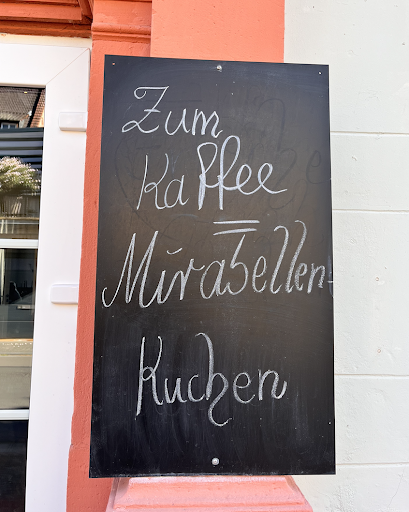 Zum
Kaffee
Mirabellen
Kuchen